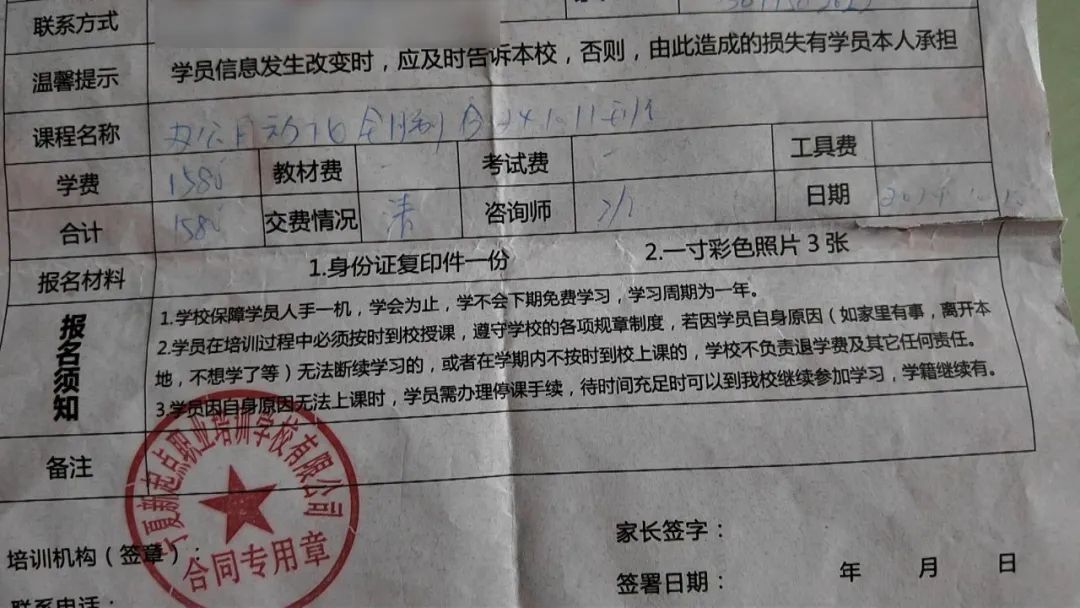 联系方式
温馨提示 学员信息发生改变时，应及时告诉本校，否则，由此造成的损失有学员本人承担
课程名称 办公自动化全 制
学费 1580 教材费 - 考试费 - 工具费
合计 1580 交费情况 清 咨询师 日期 2024
报名材料 1.身份证复印件一份 2.一寸彩色照片3张
报名须知
1.学校保障学员人手一机，学会为止，学不会下期免费学习，学习周期为一年。
2.学员在培训过程中必须按时到校授课，遵守学校的各项规章制度，若因学员自身原因（如家里有事，离开本
地，不想学了等）无法断续学习的，或者在学期内不按时到校上课的，学校不负责退学费及其它任何责任。
3.学员因自身原因无法上课时，学员需办理停课手续，待时间充足时可以到我校继续参加学习，学籍继续有。
备注
宁夏新起点职业培训学校有限公司
合同专用章
培训机构（签章）：
家长签字：
联系电话：
签署日期： 年 月 日